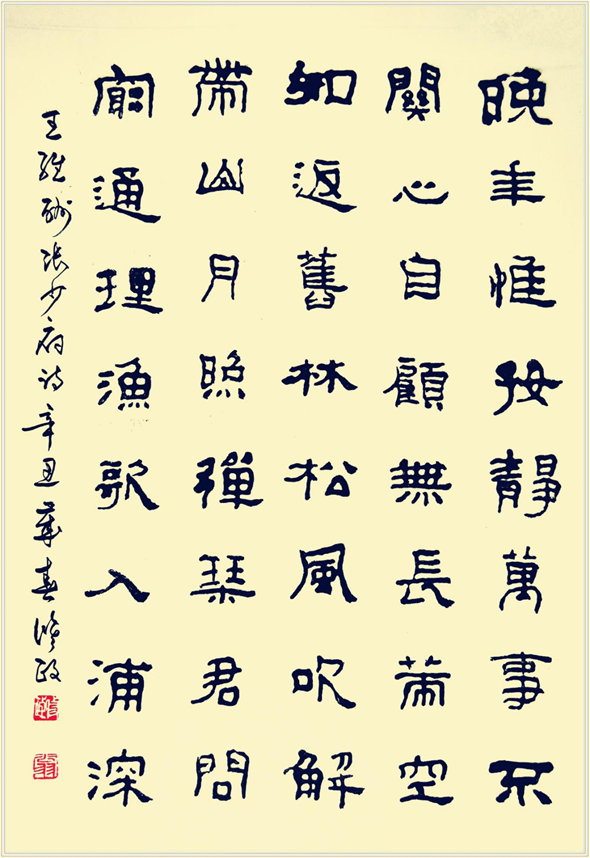 晚年惟好靜萬事不
關心自顧無長策空
知返舊林松風吹解
帶山月照彈琴君問
窮通理漁歌入浦深
王維酬張少府詩辛丑春修政